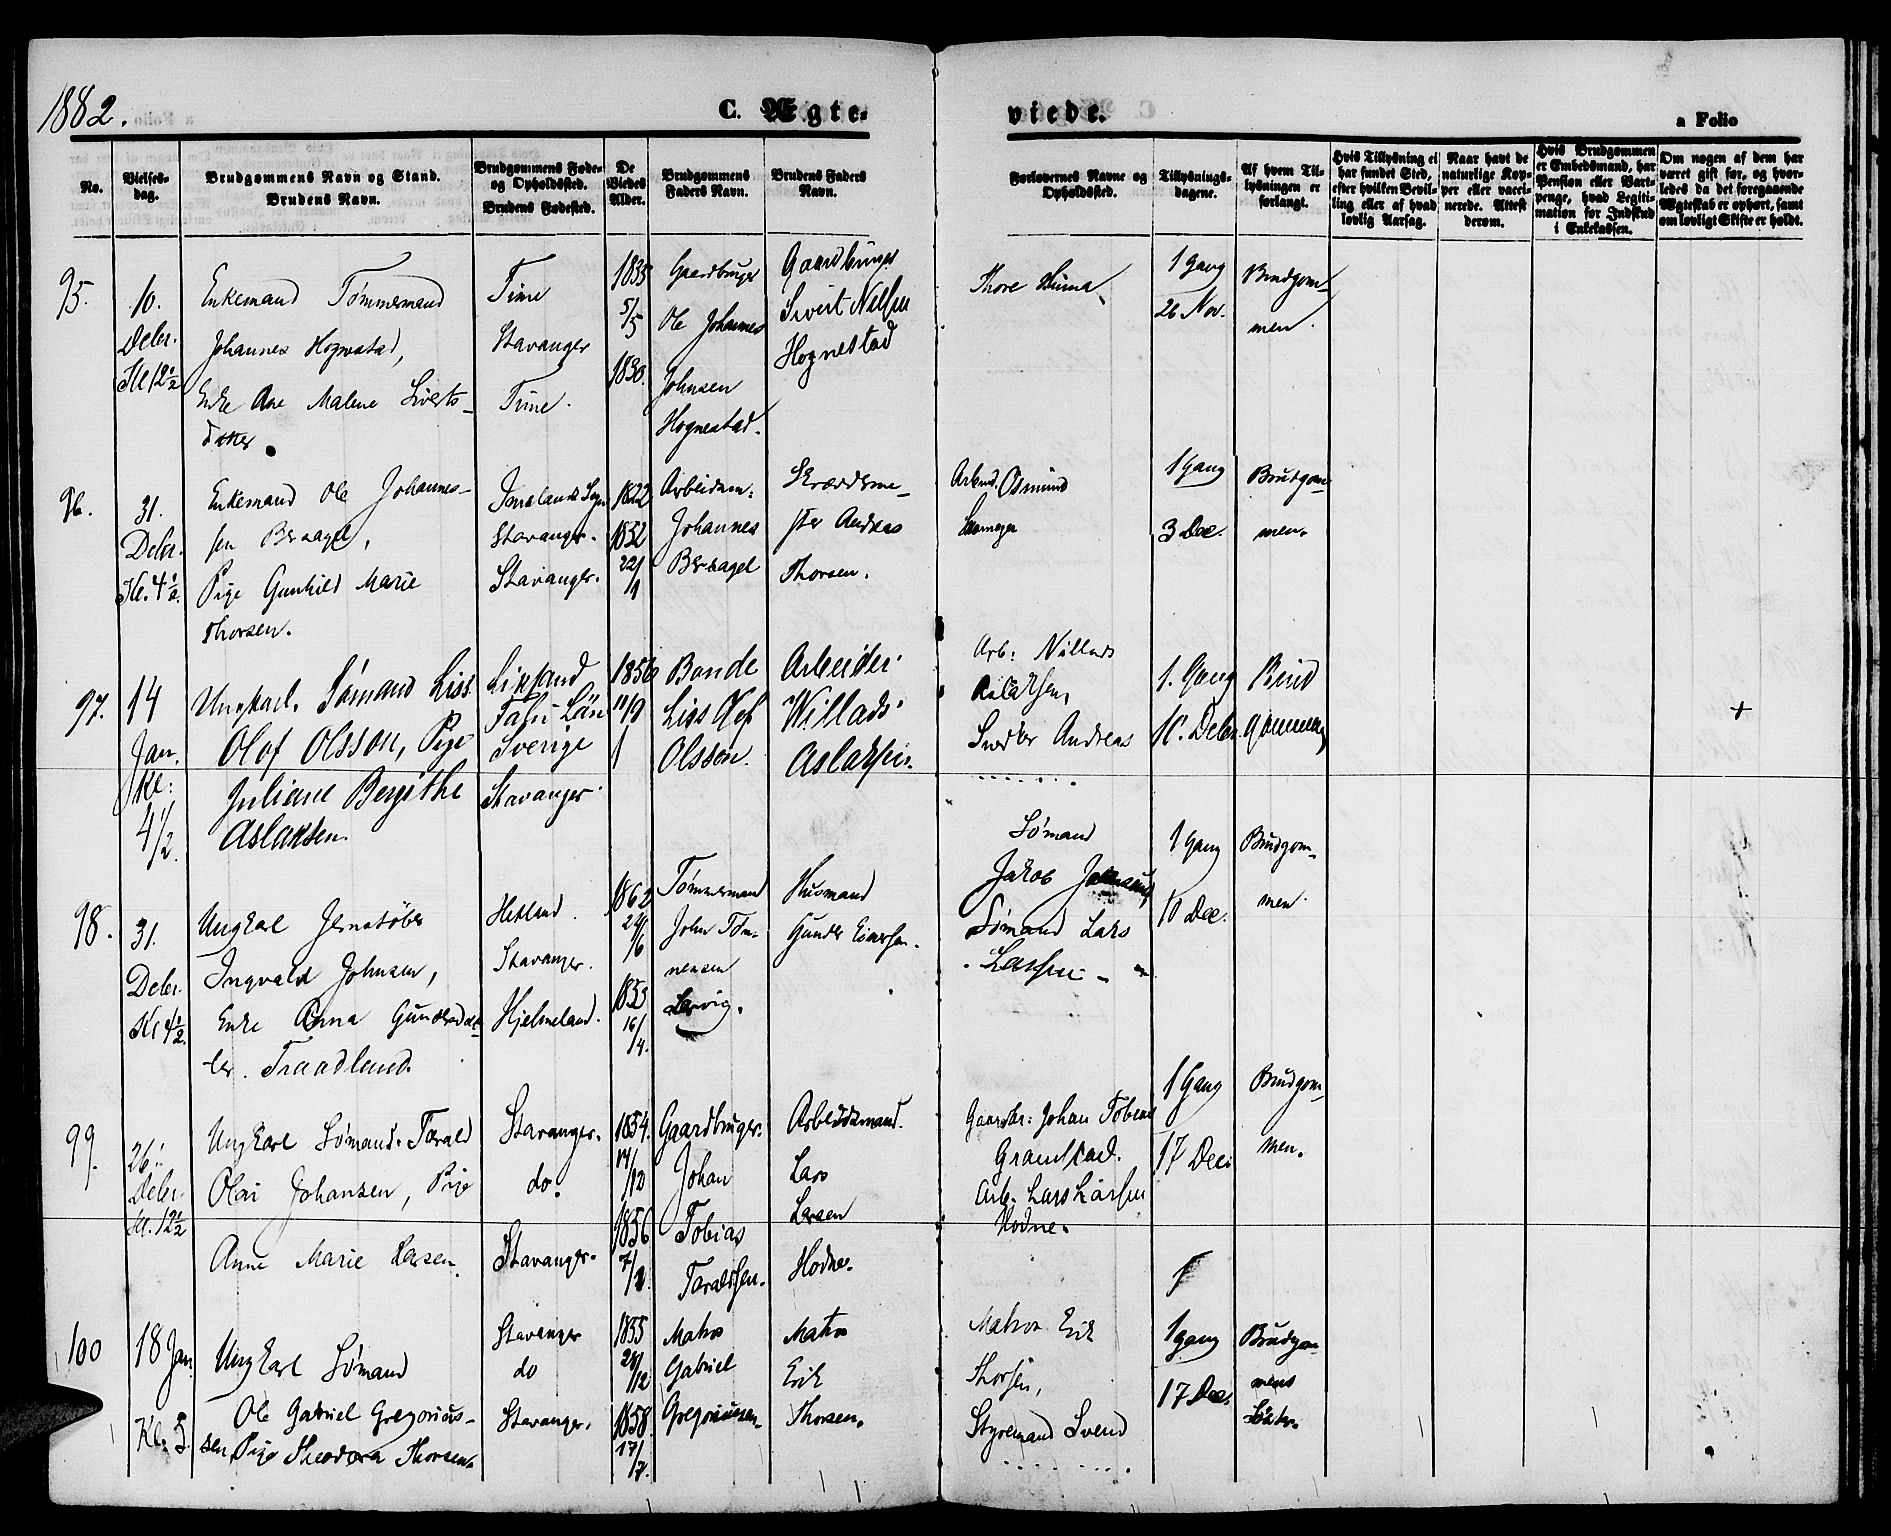 1882.
C. Ægte-
viede.
a Folio
No.
Vielses-
dag.
Brudgommens Navn og Stand.
Brudens Navn.
Brudgommens Føde-
og Opholdssted.
Brudens Fødested.
De
Viedes
Alder.
Brudgommens
Faders Navn.
Brudens Faders
Navn.
Forlovernes Navne og
Opholdssted.
Tillysnings-
dagene.
Af hvem Til-
lysningen er
forlangt.
Hvis Tillysning ei
har fundet Sted,
efter hvilken Bevil-
ling eller af hvad
lovlig Aarsag.
Naar havt de
naturlige Kop-
per eller vacci-
nerede. Attest
derom.
Hvis Brudgommen
er Embedsmand, har
Pension eller Vart-
penge, hvad Legiti-
mation for Indskud
i Enkekassen.
Om nogen af dem har
været gift før, og hvor-
ledes da det foregaaende
Ægteskab er ophørt, samt
om lovligt Skifte er holdt.
95.
10.
Decbr.
Kl 12½
Enkemand Tømmermand
Johannes Hognestad,
Enke Ane Malene Siverts-
datter.
Time
Stavanger
Time.
1835
5/5
1830.
Gaardbruger
Ole Johannes
Johnsen
Hognestad.
Gaardbruger
Sivert Nilsen
Hognestad
Thore
1 Gang
26 Nov.
Brudgom-
men.
96.
31.
Decbr.
Kl. 4½.
Enkemand Ole Johannes-
sen Bersagel,
Pige Gunhild Marie
Thorsen.
Stavanger.
Stavanger.
1822
1852
22/1
Arbeidsm:
Johannes
Bersagel
Skrædderme-
ster Andreas
Thorsen.
Arbmd. Osmund
1 Gang
3 Dec.
Brudgom-
men.
97.
14
Jan.
Kl:
4½.
Ungkarl. Sømand Liss
Olof Olsson, Pige
Juliane Bergithe
Aslaksen.
Lixsand
Falu Län
Sverige
Stavanger.
1856
11/9
Bonde
Liss Olof
Olsson.
Arbeider.
Willads.
Aslaksen.
Arb: Villads
Aslaksen,
Snedker Andreas
1. Gang
10. Decbr.
Brud
gommen
+
98.
31.
Decbr.
Kl 4½.
Ungkarl Jernstøber
Ingvald Johnsen,
Enke Anna Gundersdat-
ter. Traadlund.
Hetland.
Stavanger.
Hjelmeland.
1862
24/6
1853
16/4.
Tømmermand
John Tøn-
nessen
Larvig.
Husmand
Gunder Einersen.
Sømand
Jakob
Sømand Lars
Larsen
1 Gang
10 Dec.
Brudgom-
men.
99.
26.
Decbr.
Kl. 12½
Ungkarl Sømand. Tarald
Olai Johansen, Pige
Anne Marie Larsen.
Stavanger.
do.
Stavanger.
1854.
14/12
1856
Gaardbruger.
Johan
Tobias
Taraldsen.
Arbeidsmand.
Lars
Larsen
Hodne.
Gaardbr: Johan Tobias
Gramstad.
Arb. Lars Larsen
Hodne.
1 Gang
17 Dec.
Brudgom-
men.
100
18 Jan.
Kl. 5.
Ungkarl Sømand
Ole Gabriel Gregorius-
sen, Pige Theodora Thorsen.
Stavanger
do
Stavanger.
1855
28/12
1858.
17/7.
Matros
Gabriel
Gregoriussen
Matros
Erik
Thorsen.
Matros Erik
Thorsen,
Styrmand Svend
1 gang
17 Dec.
Brudgom-
mens